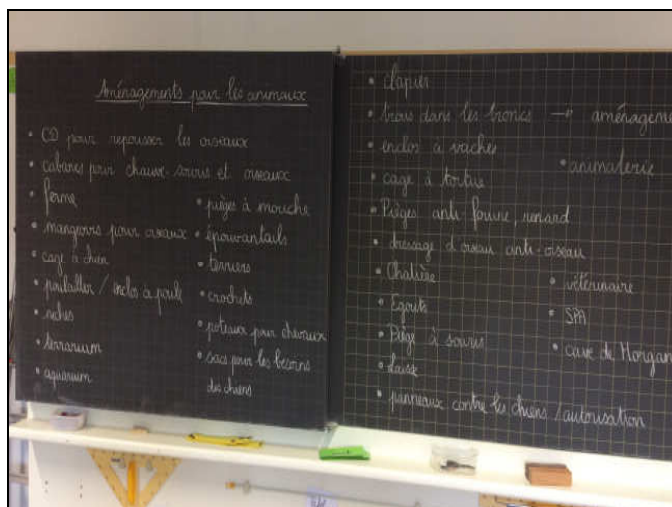 Aménagements pour les animaux
• CD pour repousser les oiseaux
• cabanes pour chauve-souris et oiseaux
• ferme
• mangeoirs pour oiseaux
• cage à chien
• poulailler / enclos à poule
• niches
• terrarium
• aquarium
• pièges à mouche
• épouvantails
• terriers
• crochets
• poteaux pour chevaux
• sacs pour les besoins
des chiens
• clapier
• trous dans les troncs → aménageme
• enclos à vaches
• animalerie
• cage à tortue
• Pièges anti fouine, renard
• dressage d'oiseau anti-oiseau
• Chatière
• Egouts
• Piège à souris
• laisse
• vétérinaire
• SPA
• cave de Morgan
• panneaux contre les chiens / autorisation